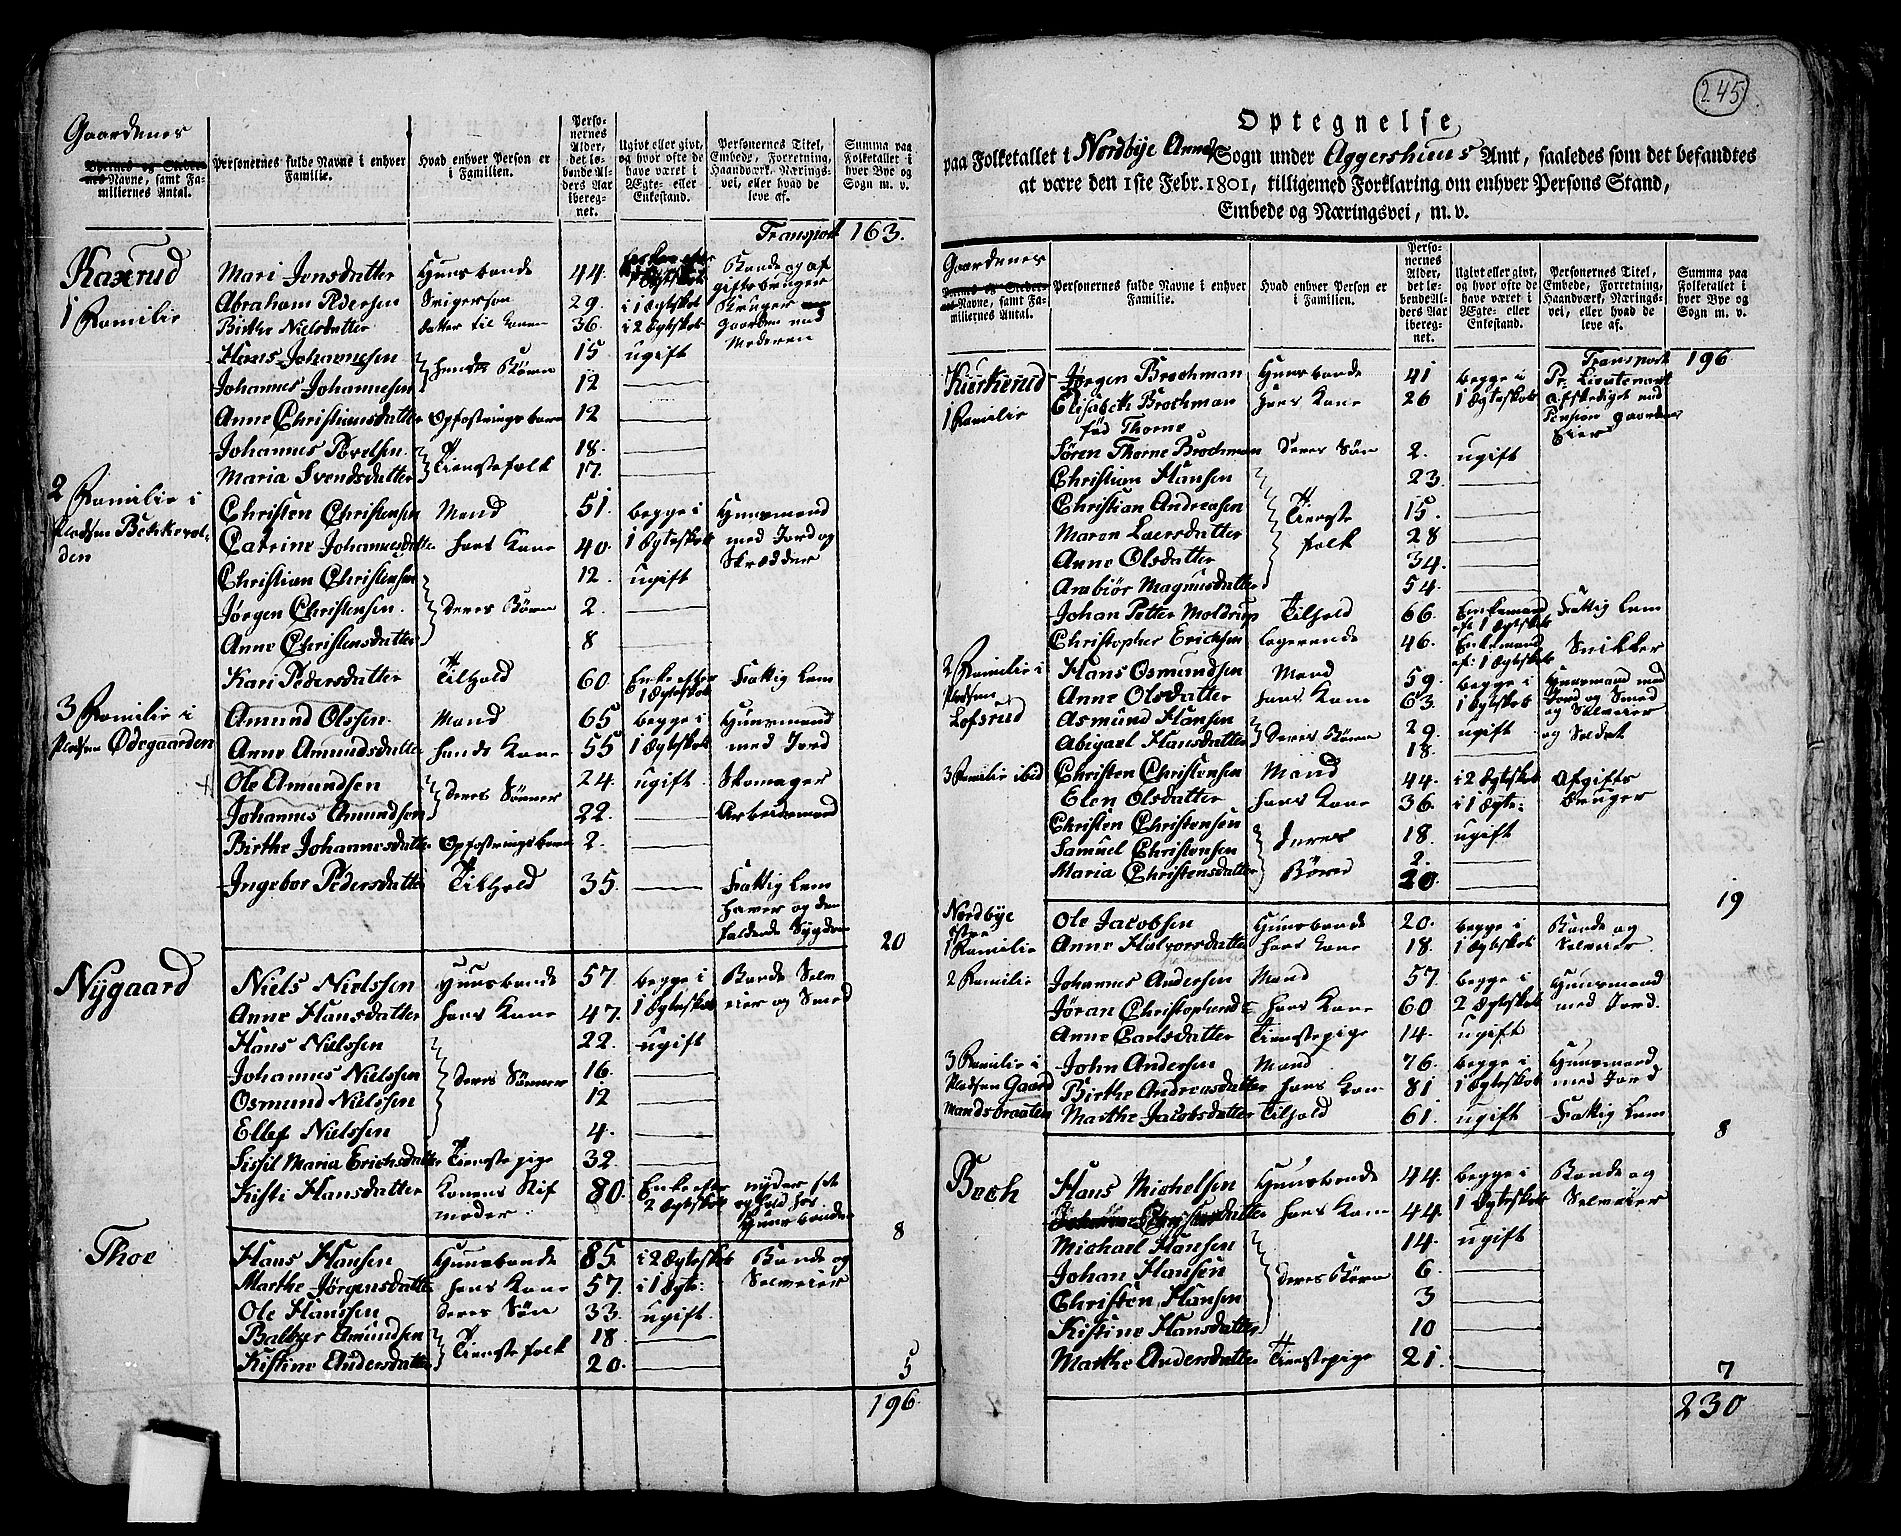 Gaardenes
Byernes og Stedernes Navne, samt Familiernes Antal.
Personernes fulde Navne i enhver Familie.
Hvad enhver Person er i Familien.
Personernes Alder, det løbende Alders Aar iberegnet.
Ugivt eller givt, og hvor ofte de have været i Ægte- eller Enkestand.
Personernes Titel, Embede, Forretning, Haandværk, Næringsvei, eller hvad de leve af.
Summa paa Folketallet i hver Bye og Sogn m. v.
Transport 163.
Kaxrud
1 Familie
Mari Jensdatter Huusbonde 44 Bonde og afgiftsbruger
Abraham Pedersen Svigersøn 29. i 1 Ægteskab Bruger
Birthe Nielsdatter datter til Konen 36. i 2 Ægteskab gaarden med Moderen
Hans Johannesen hendes Børn 15 ugift
Johannes Johannesen 12
Anne Christiansdatter Opfostringsbarn 12
Johannes Povelsen Tienestefolk 18.
Maria Svendsdatter 17.
2 Familie i Pladsen Bekkevolden
Christen Christensen Mand 51. begge i Huusmand
Catrine Johannesdatter hans Kone 40. 1 Ægteskab med Jord og
Christian Christensen 12. ugift Skrædder
Jørgen Christensen. deres Børn 2.
Anne Christensdatter 8
Kari Pedersdatter Tilhold 60 Enke efter 1 Ægteskab Fattig Lem
3 Familie i Pladsen Ødegaarden
Amund Olssen Mand 65 begge i Huusmand
Anne Amundsdatter hands Kone 55 1 Ægteskab med Jord
Ole Amundsen deres Sønner 24. ugift Skomager
Johannes Amundsen 22. Arbeidsmand
Birthe Johannesdatter Opfostringsbarn 2.
Ingebor Pedersdatter Tilhold 35. Fattig Lem haver og den faldende Sygdom
20
Nygaard
Niels Nielssen Huusbonde 57 begge i Bonde Selv
Anne Hansdatter hans Kone 47. 1 Ægteskab eier og Smed
Hans Nielssen 22. ugift
Johannes Nielssen deres Sønner 16.
Osmund Nielssen 12
Ellef Nielssen 4.
Sissil Maria Erichsdatter Tienestepige 32.
Kisti Hansdatter Konens Stif moder. 80. Enke efter 2 Ægteskab nyder sit ophold hos Huusbonden
8
Thoe
Hans Hansen Huusbonde 85. i 2 Ægteskab Bonde og
Marthe Jørgensdatter hans Kone 57. i 1 Ægte: Selveier
Ole Hanssen deres Søn 33. ugift
Balzer Amundsen Tienestefolk 18.
Kistine Andersdatter 20.
5
196.
245
Optegnelse
paa Folketallet i Nordbye Annex Sogn under Aggershuus Amt, saaledes som det befandtes
at være den 1ste Febr. 1801, tilligemed Forklaring om enhver Persons Stand,
Embede og Næringsvei, m. v.
Gaardenes
Byernes og Stedernes Navne, samt Familiernes Antal.
Personernes fulde Navne i enhver Familie.
Hvad enhver Person er i Familien.
Personernes Alder, det løbende Alders Aar iberegnet.
Ugivt eller givt, og hvor ofte de have været i Ægte- eller Enkestand.
Personernes Titel, Embede, Forretning, Haandværk, Næringsvei, eller hvad de leve af.
Summa paa Folketallet i hver Bye og Sogn m. v.
Transport 196
Kierkerud
1 Familie
Jørgen Brochman Huusbonde 41 begge i Pr. Lieutenant
Elisabeth Brochman hans Kone 26 1 Ægteskab afskediget med
fød Thorne Pension gaardens Eier
Søren Thorne Brochman deres Søn 2. ugift
Christian Hansen 23.
Christian Andreasen Tieneste 15.
Maren Laersdatter folk 28
Anne Olsdatter 34.
Arnbiør Magnusdatter 54.
Johan Petter Moldrup Tilhold 66. Enkemand eft 1 Ægteskab Fattig Lem
Christopher Ericksen logerende 46. Enkemand eft: 1 Ægteskab Snikker
2 Familie i Pladsen Lofsrud
Hans Osmundsen Mand 59. begge i Huusmand med
Anne Olsdatter hans Kone 63. 1 Ægteskab Jord og Smed og Selveier
Asmund Hansen deres Børn 29. ugift og Soldat
Abigael Hansdatter 18.
3 Familie ibid
Christen Christensen Mand 44. i 2 Ægteskab Afgifts
Elen Olsdatter hans Kone 36. i 1 Ægte: bruger
Christen Christensen deres 18. ugift
Samuel Christensen Børn 2.
Maria Christensdatter 20.
19
Nordbye østre
1 Familie
Ole Jacobsen Huusbonde 20. begge i Bonde og
Anne Halvorsdatter hans Kone 18. 1 Ægteskab Selveier.
2 Familie
Johannes Andersen Mand 57. begge i Huusmand
Jøran Christophersd: hans Kone 60 2 Ægteskab med Jord.
Anne Carlsdatter Tienestepige 14. ugift
3 Familie i Pladsen Gaardmandsbraaten
John Andersen Mand 76. begge i Huusmand
Birthe Andreasdatter hans Kone 81 1 Ægteskab med Jord
Marthe Jacobsdatter Tilhold 61. ugift Fattig Lem
8
Boch
Hans Michelsen Huusbonde 44. begge i Bonde og
datter hans Kone 44. 1 Ægteskab Selveier
Michael Hansen 14. ugift
Johan Hansen deres Børn 6
Christen Hansen 3
Kistine Hansdatter 10
Marthe Andersdatter Tienestepige 21.
7
230